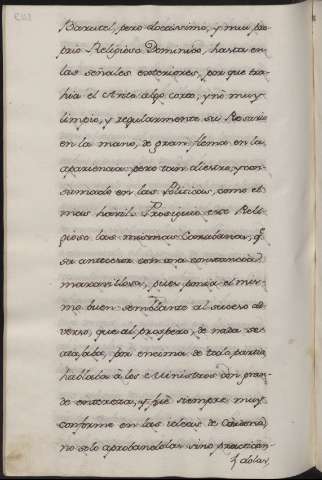 Barutel, pero doctissimo, y muy pro
prio Religioso Dominico, hasta en
las señales exteriores, por que tra-
hia el Avito algo corto, y no muy
limpio, y regularmente su Rosario
en la mano, de gran flema en la
apariencia pero tan diestro, y con-
sumado en las Politicas, como el
mas havil. Prosiguió este Reli-
gioso las mismas Caravanas, q.e
su antecesor con una constancia
maravillosa, pues ponia el mis-
mo buen semblante al suceso ad-
verso, que al prospero, de nada se
atajaba, por encima de todo partia,
hablaba à los Ministros con gran-
de entereza, y fué siempre muy
conforme en las ideas de
no solo aprobandolas sino practican-
dolas,